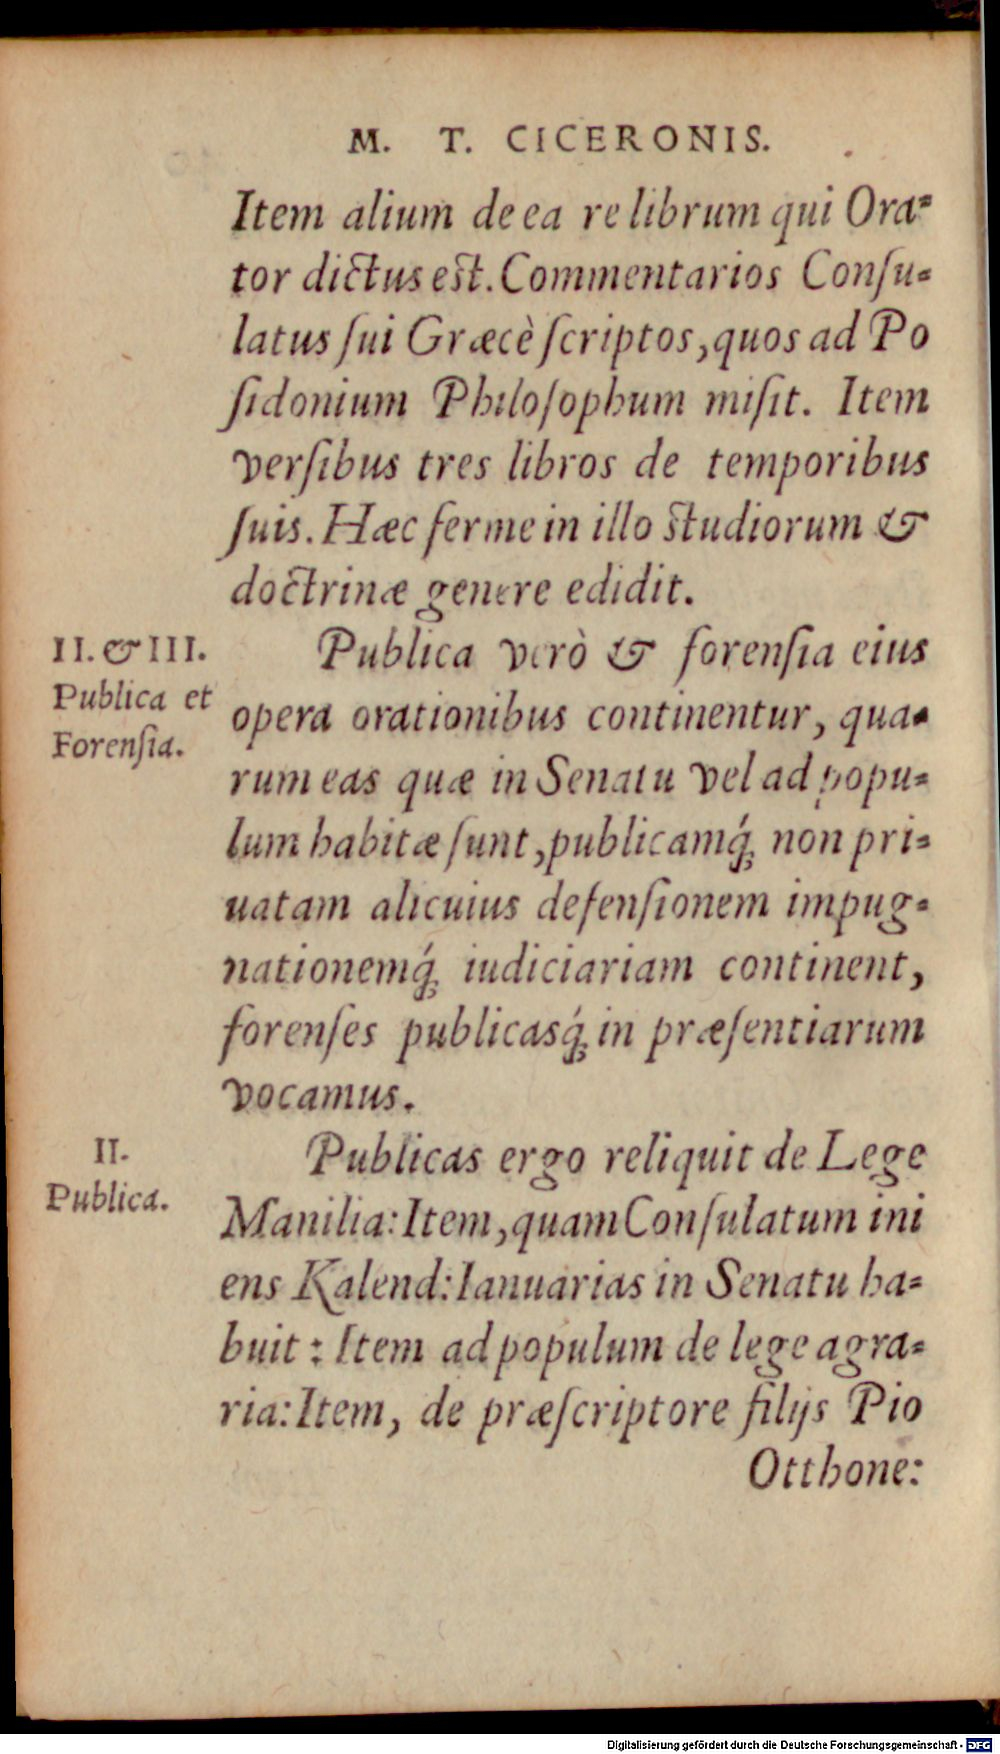 M. T. CICERONIS.
Item alium de ea re librum qui Ora-
tor dictus est. Commentarios Conſu-
latus ſui Græcè ſcriptos, quos ad Po
ſidonium Philoſophum miſit. Item
verſibus tres libros de temporibus
ſuis. Hæc ferme in illo ſtudiorum &
doctrinæ genere edidit.
II. & III.
Publica et
Forenſia.
Publica verò & forenſia eius
opera orationibus continentur, qua-
rum eas quæ in Senatu vel ad popu-
lum habitæ ſunt, publicamq́; non pri-
uatam alicuius defenſionem impug-
nationemq́; iudiciariam continent,
forenſes publicasq́; in præſentiarum
vocamus.
II.
Publica.
Publicas ergo reliquit de Lege
Manilia: Item, quam Conſulatum ini
ens Kalend: Ianuarias in Senatu ha-
buit: Item ad populum de lege agra-
ria: Item, de præſcriptore filijs Pio
Otthone:
Digitalisierung gefördert durch die Deutsche Forschungsgemeinschaft - DFG